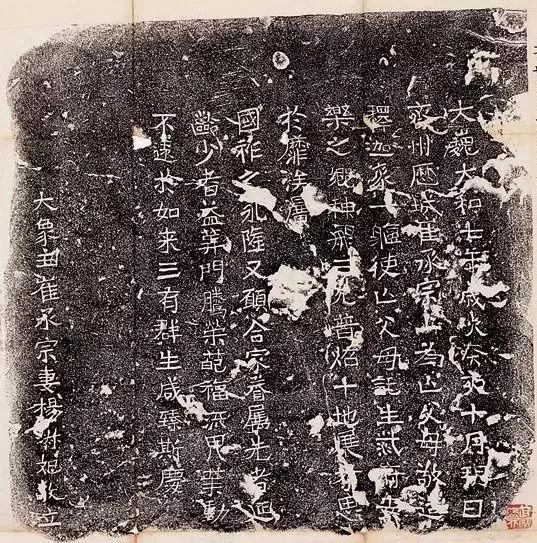 大魏太和七年歲次癸亥十月朔日
齊州歷城崔承宗上為亡父母敬造
釋迦像一軀使亡父母託生紫府安
樂之處神飛三光普炤十地展思
於靡涘屬
國祚之永隆又願合家眷屬老者延
齡少者益筭門騰榮葩福流奕葉動
不遠於如来三有群生咸臻斯慶
大象主崔承宗妻楊叔姬敬立